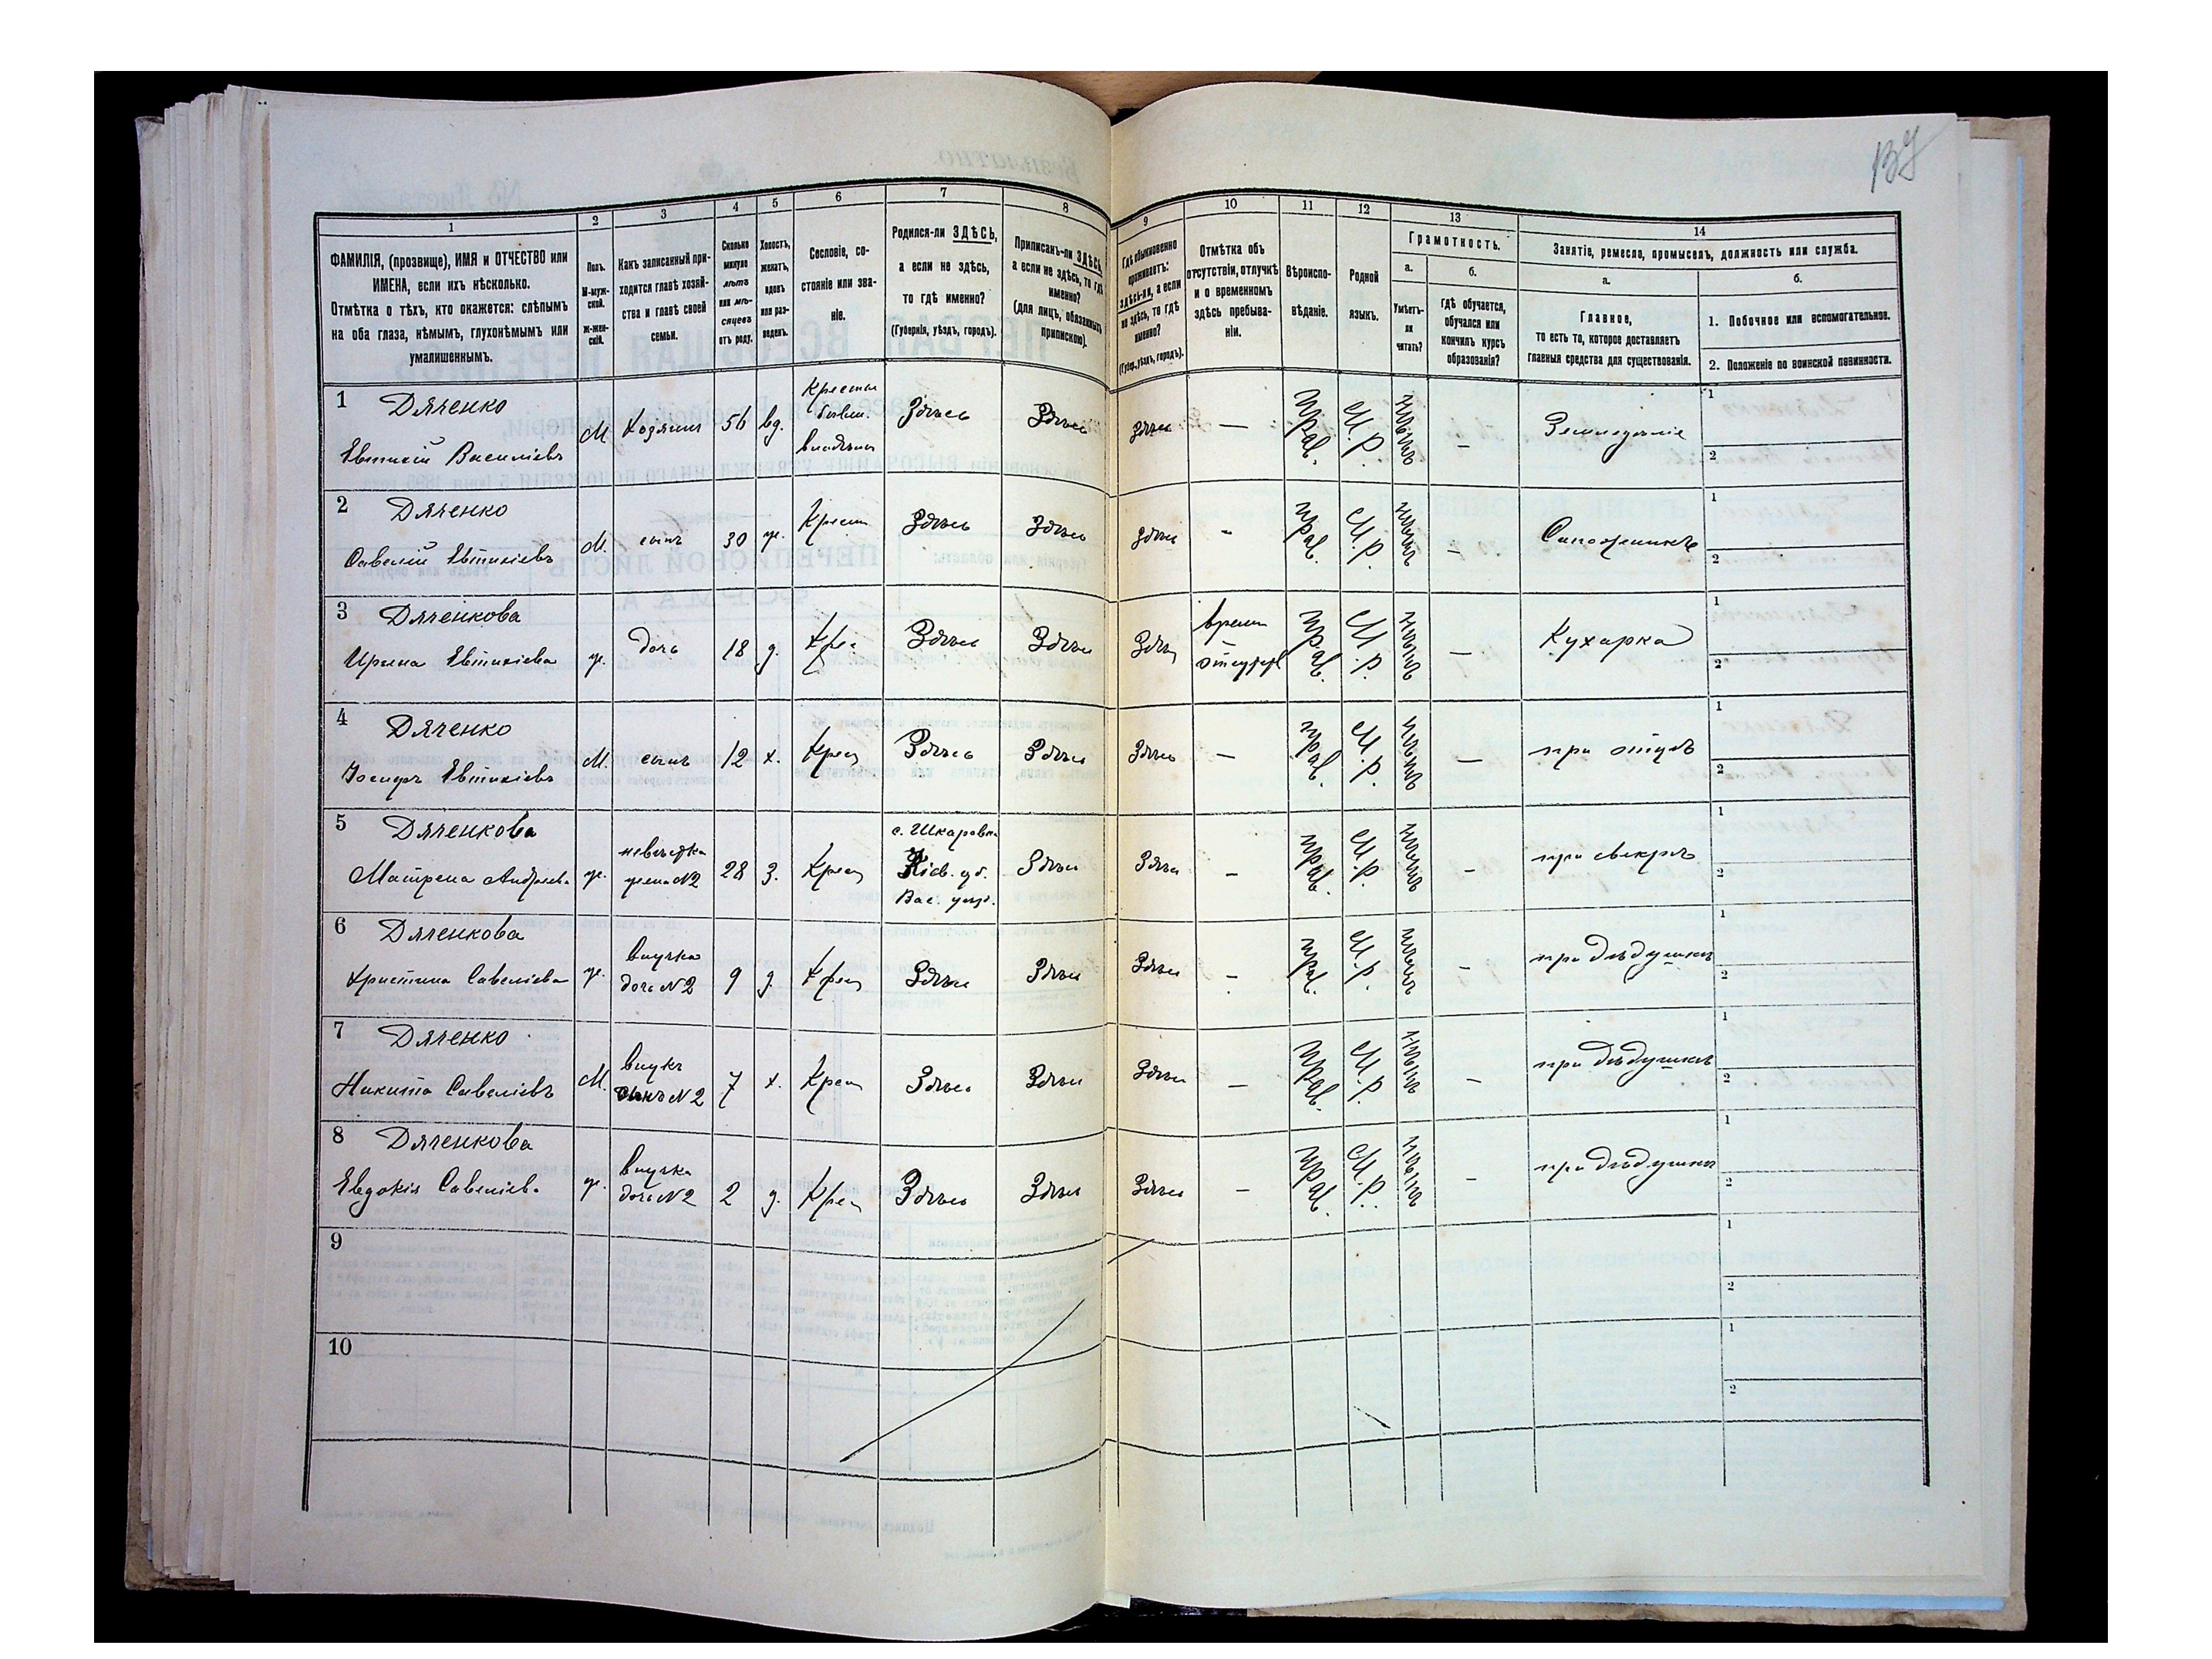 137
1
2
3
4
5
6
7
8
9
10
11
12
13
14
ФАМИЛІЯ, (прозвище), ИМЯ и ОТЧЕСТВО или
ИМЕНА, если ихъ нѣсколько.
Отмѣтка о тѣхъ, кто окажется: слѣпымъ
на оба глаза, нѣмымъ, глухонѣмымъ или
умалишеннымъ.
Полъ.
М-муж-
ской.
Ж-жен-
скій.
Какъ записанный при-
ходится главѣ хозяй-
ства и главѣ своей
семьи.
Сколько
минуло
лѣтъ
или мѣ-
сяцевъ
отъ роду.
Холостъ,
женатъ,
вдовъ
или раз-
веденъ.
Сословіе, со-
стояніе или зва-
ніе.
Родился-ли ЗДѢСЬ,
а если не здѣсь,
то гдѣ именно?
(Губернія, уѣздъ, городъ).
Приписанъ-ли ЗДѢСЬ,
а если не здѣсь, то гдѣ
именно?
(для лицъ, обязанныхъ
припискою).
Гдѣ обыкновенно
проживаетъ:
здѣсь-ли, а если
не здѣсь, то гдѣ
именно?
(Губер., уѣздъ, городъ).
Отмѣтка объ
отсутствіи, отлучкѣ
и о временномъ
здѣсь пребыва-
ніи.
Вѣроиспо-
вѣданіе.
Родной
языкъ.
Грамотность.
а.
Умѣетъ-
ли
читать?
б.
Гдѣ обучается,
обучался или
кончилъ курсъ
образованія?
Занятіе, ремесло, промыселъ, должность или служба.
а.
Главное,
то есть то, которое доставляетъ
главныя средства для существованія.
б.
1. Побочное или вспомогательное.
2. Положеніе по воинской повинности.
1 Дяченко
Евтихій Василіевъ
М. Хозяинъ 56 вд.
Крестья
бывш.
владѣльч
Здѣсь Здѣсь Здѣсь — прав. М.Р. нѣтъ — Земледѣліе
1
2
2 Дяченко
Савелій Евтихіевъ
М. сынъ 30 ж. Крестьян Здѣсь Здѣсь Здѣсь - прав. М.Р. нѣтъ — Сапожникъ
1
2
3 Дяченкова
Ирина Евтихіева
ж. дочь 18 д. Крес Здѣсь Здѣсь Здѣсь
врем
отсутств
прав. М.Р. нѣтъ — Кухарка
1
2
4 Дяченко
Іосифъ Евтихіевъ
М. сынъ 12 х. Крес Здѣсь Здѣсь Здѣсь — прав. М.Р. нѣтъ — при отцѣ
1
2
5 Дяченкова
Матрена Андреева
ж.
невѣстка
жена N2
28 з. Крес
с. Шкаровка
Кіев. губ.
Вас. уѣзд.
Здѣсь Здѣсь - прав. М.Р. нѣтъ - при свекрѣ
1
2
6 Дяченкова
Христина Савеліева
ж.
внучка
дочь N2
9 д. Крес Здѣсь Здѣсь Здѣсь - прав. М.Р. нѣтъ - при дѣдушкѣ
1
2
7 Дяченко
Никита Савеліевъ
М.
внукъ
сынъ N2
7 х. Крес Здѣсь Здѣсь Здѣсь — прав. М.Р. нѣтъ - при дѣдушкѣ
1
2
8 Дяченкова
Евдокія Савеліева
ж.
внучка
дочь N2
2 д. Крес Здѣсь Здѣсь Здѣсь — прав. М.Р. нѣтъ - при дѣдушкѣ
1
2
9
1
2
10
1
2